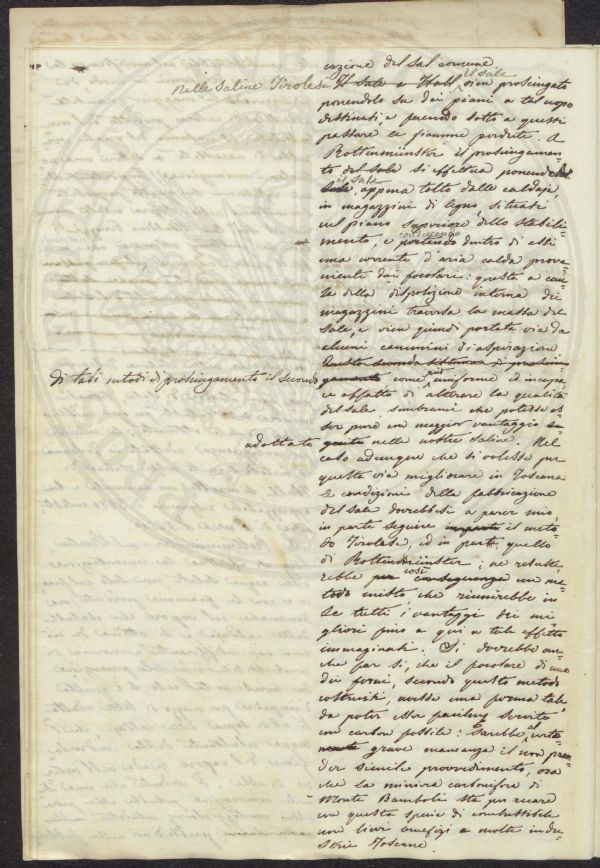 cazione del sal comune
Nelle Saline Tirolesi Il Sale a Hall il sale vien prosciugato
ponendolo su dai piani a tal uopo
destinati, e facendo sotto a questi
passare le fiamme perdute. A
Rottenmünster il prosciugamen=
to del Sale si effettua ponendo del
Sale il sale, appena tolto dalle caldaje
in magazzini di legno, situati
nel piano superiore dello stabili=
mento, e portando conducendo dentro di essi
una corrente d'aria calda prove=
niente dai focolari: questa a cau=
sa della disposizione interna dei
magazzini traversa la massa del
Sale, e vien quindi portata via da
alcuni cammini d'aspirazione
Questo secondo sistema di prosciu=
Di tali metodi di prosciugamento il secondo gamento come più uniforme ed incapa=
ce affatto di alterare la qualità
del sale sembrami che potesse es
ser pure con maggior vantaggio se=
adottato guito nelle nostre Saline. Nel
caso adunque che si volesse per
questa via migliorare in Toscana
le condizioni della fabbricazione
del Sale dovrebbesi a parer mio
in parte seguire in parte il meto=
do Tirolese, ed in parte quello
di Rottenmünster; ne resulte=
rebbe per conseguenza così un me=
todo misto, che riunirebbe in
se tutti i vantaggi dei mi=
gliori fino a qui a tale effetto
immaginati. Si dovrebbe an=
che far sì, che il focolare di uno
dei forni, secondo questo metodo
costruiti, avesse una forma tale,
da poter esser servito
con carbon fossile: Sarebbe
grave mancanza il non pren=
der simile provvedimento, ora
che la miniera carbonifera di
Monte Bamboli sta per recare
con questa specie di combustibile
non lievi benefizi a molte indu=
strie Toscane.